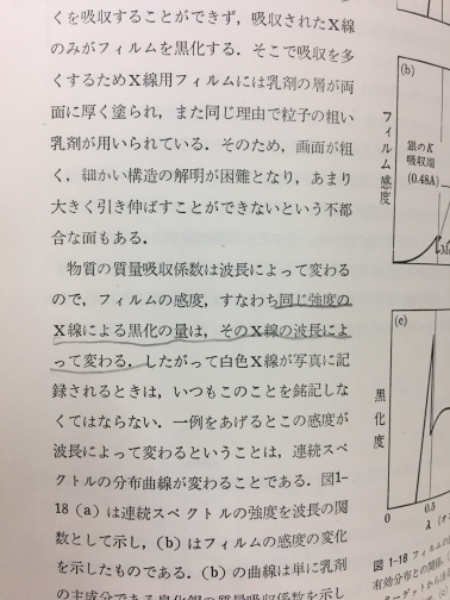 くを吸収することができず，吸収されたX線
のみがフィルムを黒化する．そこで吸収を多
くするためX線用フィルムには乳剤の層が両
面に厚く塗られ，また同じ理由で粒子の粗い
乳剤が用いられている．そのため，画面が粗
く，細かい構造の解明が困難となり，あまり
大きく引き伸ばすことができないという不都
合な面もある．
物質の質量吸収係数は波長によって変わる
ので，フィルムの感度，すなわち同じ強度の
X線による黒化の量は，そのX線の波長によ
って変わる．したがって白色X線が写真に記
録されるときは，いつもこのことを銘記しな
くてはならない．一例をあげるとこの感度が
波長によって変わるということは，連続スペ
クトルの分布曲線が変わることである．図1-
18 (a) は連続スペクトルの強度を波長の関
数として示し，(b) はフィルムの感度の変化
を示したものである．(b) の曲線は単に乳剤
の主成分である臭化銀の質量吸収係数を示し
(b)
フィルム感度
銀のK
吸収端
(0.48A)
(c)
黒化度
0
0.5
λ
図 1-18 フィルムの
有効分布との関係．
ターゲットから